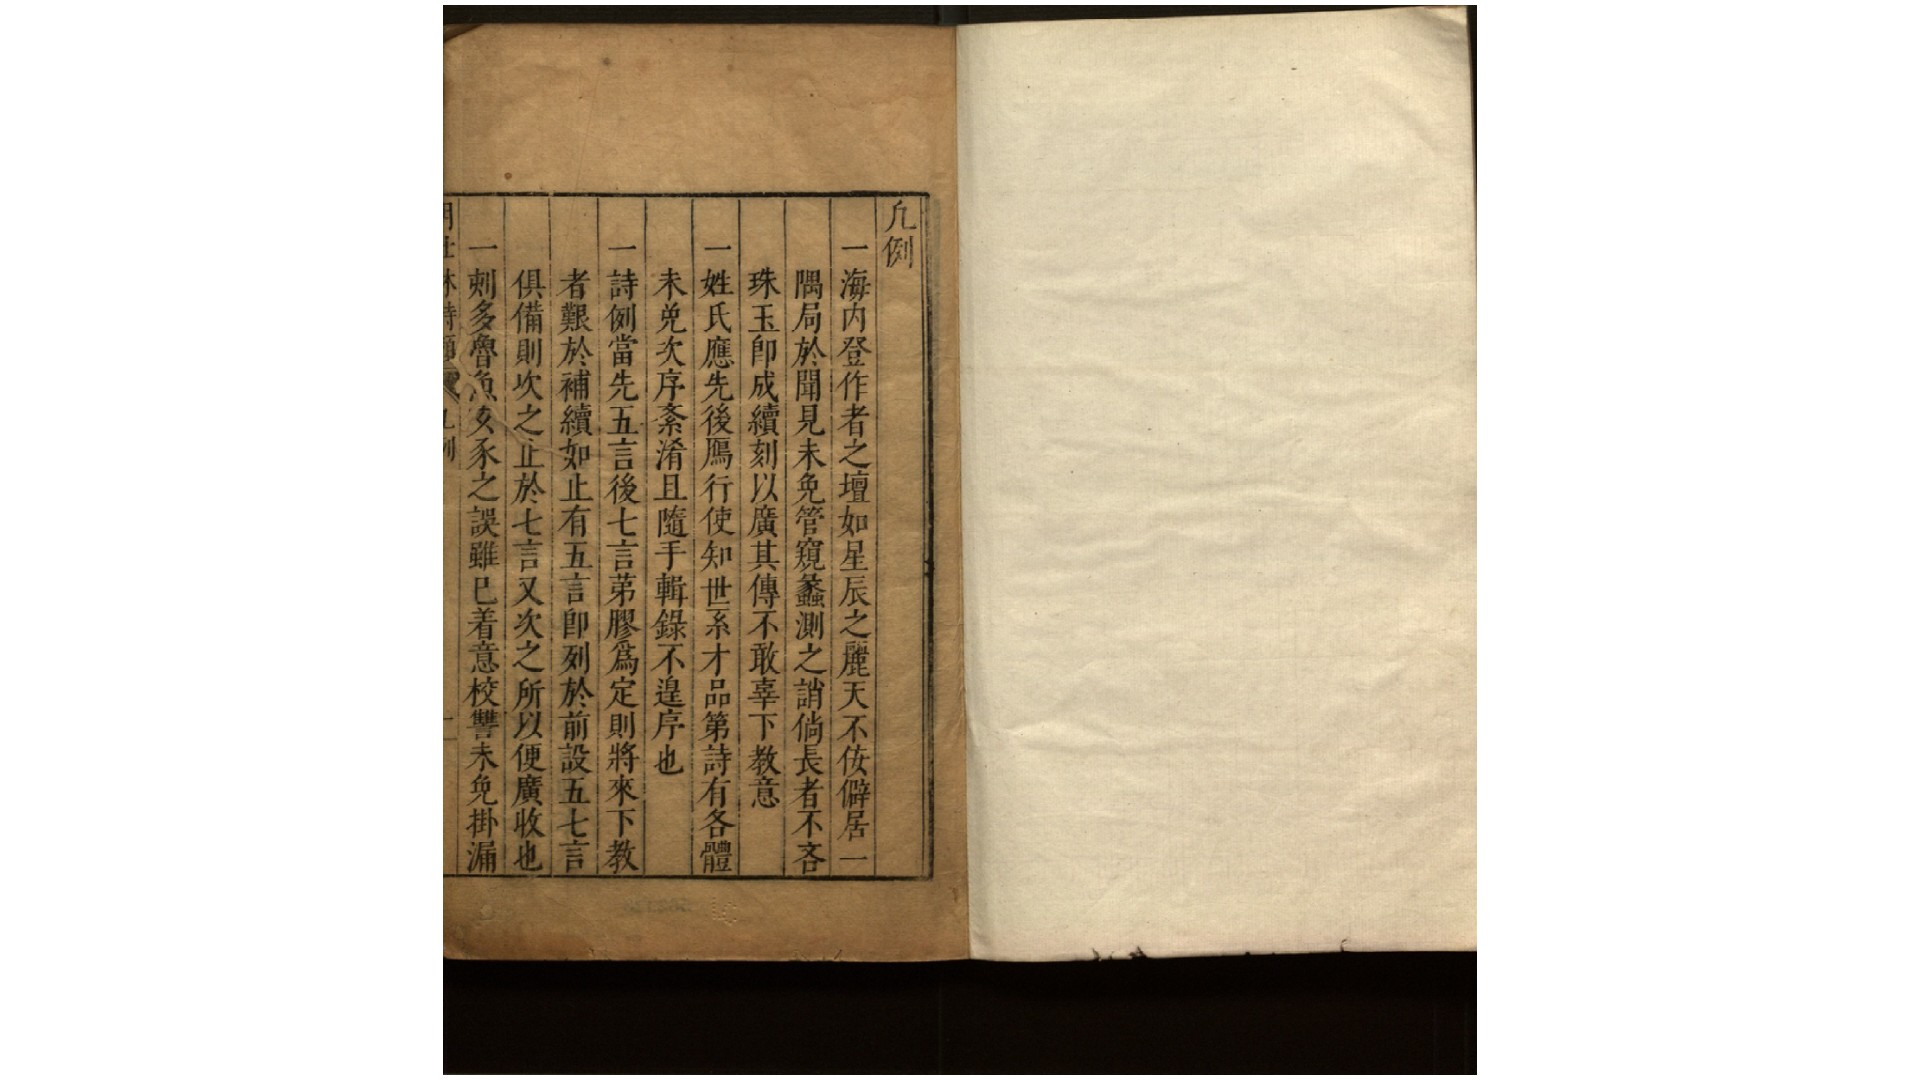 凢例
一海内登作者之壇如星辰之麗天不佞僻居一
隅局於聞見未免管窺蠡測之誚倘長者不吝
珠玉卽成續刻以廣其傳不敢辜下教意
一姓氏應先後鴈行使知世系才品第詩有各體
未免次序紊淆且隨手輯錄不遑序也
一詩例當先五言後七言苐膠爲定則將來下教
者艱於補續如止有五言卽列於前設五七言
俱備則次之止於七言又次之所以便廣收也
一刺多魯魚亥豕之誤雖已着意校讐未免掛漏